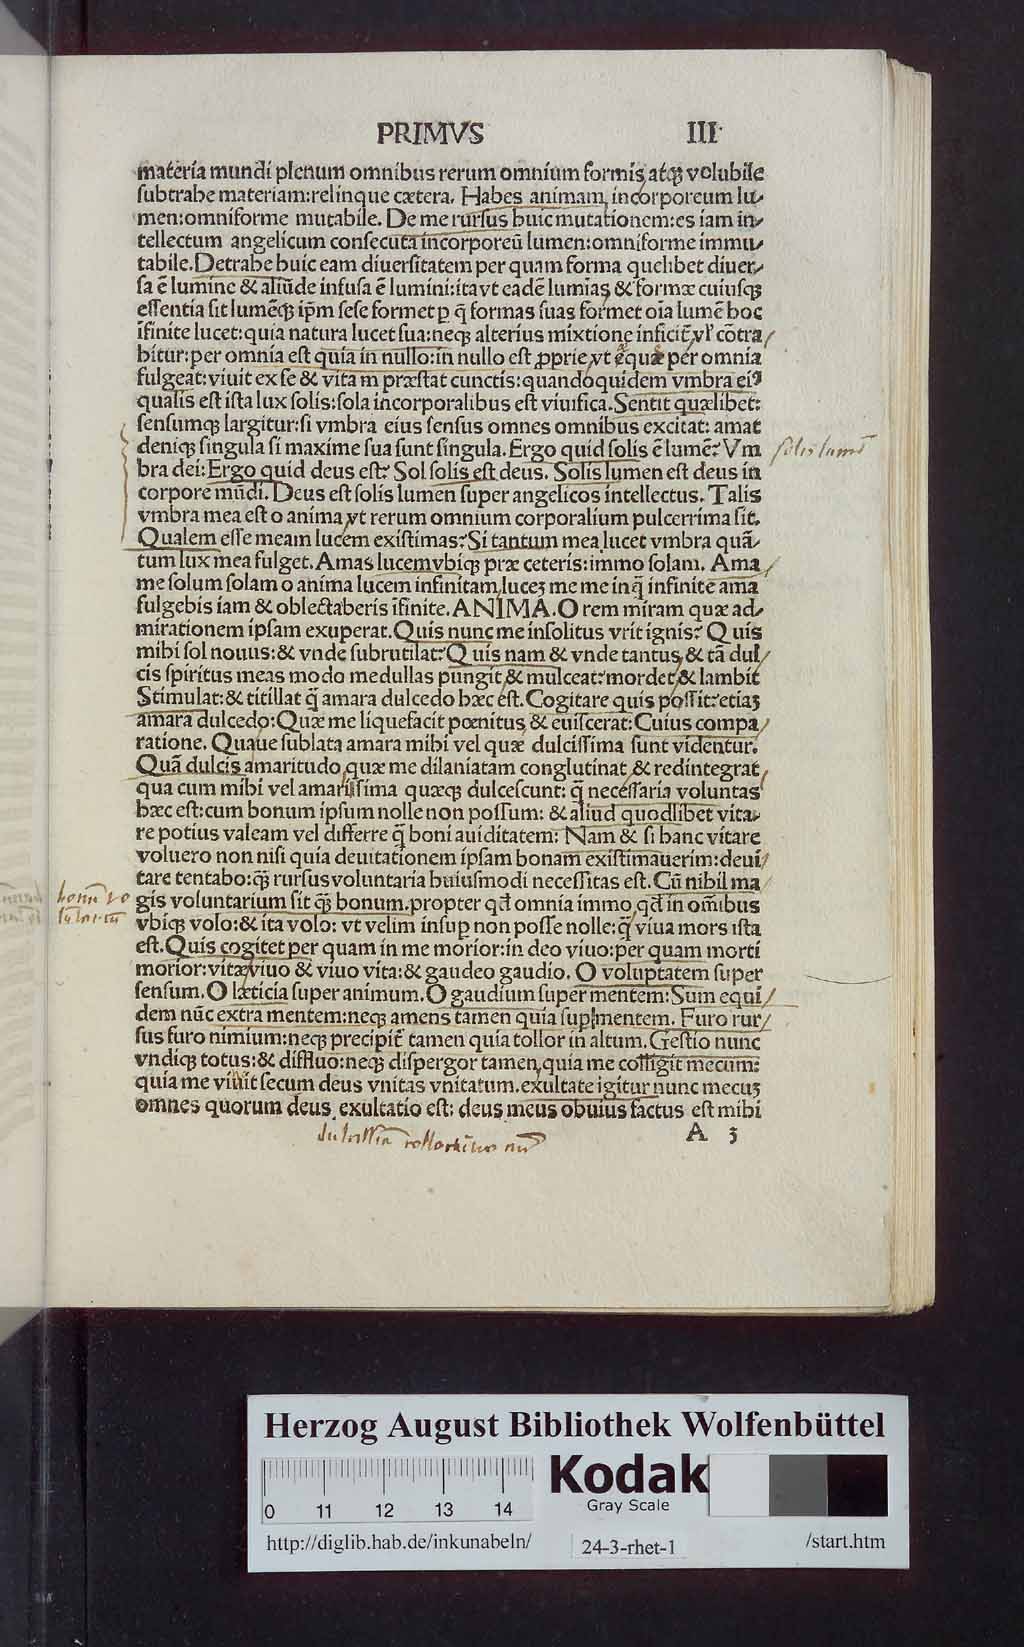 PRIMVS III
materia mundi plenum omnibus rerum omnium formis atqꝫ volubile
subtrahe materiam:relinque cætera. Habes animam incorporeum lu-
men:omniforme mutabile. Deme rursus huic mutationem:es iam in-
tellectum angelicum consecuta incorporeū lumen:omniforme immu-
tabile.Detrahe huic eam diuersitatem per quam forma quelibet diuer-
sa ē lumine & aliūde infusa ē lumini:ita vt eadē luminis & formæ cuiusqꝫ
essentia sit lumēqꝫ ip̄m sese formet ꝑ q̄ formas suas formet oīa lumē hoc
īfinite lucet:quia natura lucet sua:neqꝫ alterius mixtione inficit̄ vl' cōtra
hitur:per omnia est quia in nullo:in nullo est ꝓprie vt eque per omnia
fulgeat:viuit ex se & vitam præstat cunctis:quandoquidem vmbra eiꝰ
qualis est ista lux solis:sola incorporalibus est viuifica.Sentit quælibet:
sensumqꝫ largitur:si vmbra eius sensus omnes omnibus excitat: amat
deniqꝫ singula si maxime sua sunt singula. Ergo quid solis ē lumē? Vm
bra dei:Ergo quid deus est? Sol solis est deus. Solis lumen est deus in
corpore mūdi. Deus est solis lumen super angelicos intellectus. Talis
vmbra mea est o anima vt rerum omnium corporalium pulcerrima sit.
Qualem esse meam lucem existimas? Si tantum mea lucet vmbra quā-
tum lux mea fulget. Amas lucem vbiqꝫ præ ceteris:immo solam. Ama
me solum solam o anima lucem infinitam luceꝫ me me inq̄ infinite ama
fulgebis iam & oblectaberis īfinite. ANIMA. O rem miram quæ ad-
mirationem ipsam exuperat. Quis nunc me insolitus vrit ignis? Quis
mihi sol nouus:& vnde subrutilat? Quis nam & vnde tantus & tā dul
cis spiritus meas modo medullas pungit & mulceat? mordet & lambit
Stimulat:& titillat q̄ amara dulcedo hæc est. Cogitare quis possit? etiaꝫ
amara dulcedo:Quæ me liquefacit pœnitus & euiscerat: Cuius compa
ratione. Quaue sublata amara mihi vel quæ dulcissima sunt videntur.
Quā dulcis amaritudo quæ me dilaniatam conglutinat & redintegrat
qua cum mihi vel amarissima quæqꝫ dulcescunt: q̄ necessaria voluntas
hæc est:cum bonum ipsum nolle non possum: & aliud quodlibet vita-
re potius valeam vel differre q̄ boni auiditatem: Nam & si hanc vitare
voluero non nisi quia deuitationem ipsam bonam existimauerim:deui
tare tentabo:qꝫ rursus voluntaria huiusmodi necessitas est. Cū nihil ma
gis voluntarium sit qꝫ bonum.propter qd̄ omnia immo qd̄ in om̄ibus
vbiqꝫ volo:& ita volo: vt velim insuꝑ non posse nolle:q̄ viua mors ista
est. Quis cogitet per quam in me morior:in deo viuo:per quam morti
morior:vitæ viuo & viuo vita:& gaudeo gaudio. O voluptatem super
sensum. O læticia super animum. O gaudium super mentem: Sum equi
dem nūc extra mentem:neqꝫ amens tamen quia suꝑ mentem. Furo rur
sus furo nimium:neqꝫ precipit̄ tamen quia tollor in altum. Gestio nunc
vndiqꝫ totus:& diffluo:neqꝫ dispergor tamen quia me colligit mecum:
quia me viuit secum deus vnitas vnitatum.exultate igitur nunc mecuꝫ
omnes quorum deus exultatio est: deus meus obuius factus est mihi
A 3
solis lumē
bonū vo
lūtariū
Herzog August Bibliothek Wolfenbüttel
0 11 12 13 14
Kodak
Gray Scale
http://diglib.hab.de/inkunabeln/ 24-3-rhet-1 /start.htm